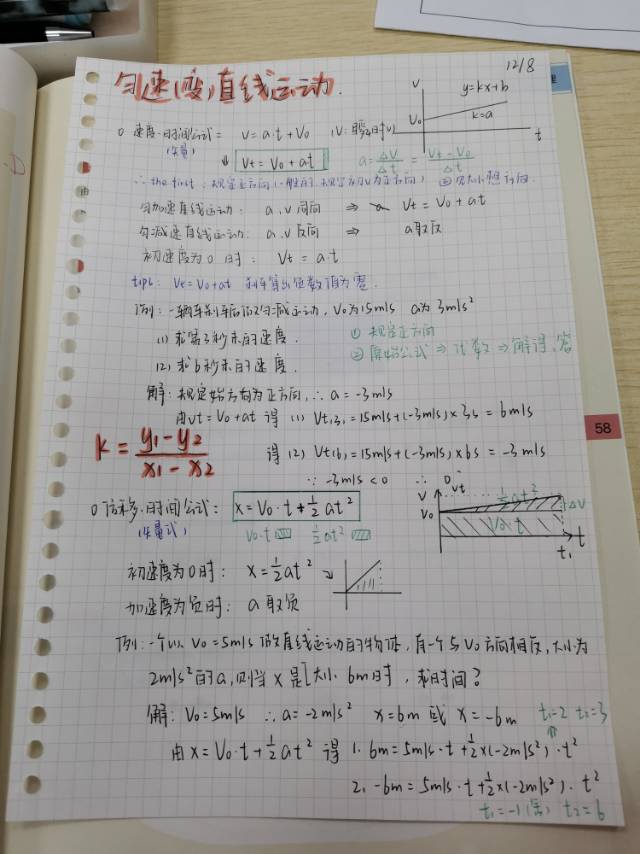 12/8
匀速(变)直线运动.
v
y=kx+b
V₀
k=a
t
速度·时间公式: v=a·t+V₀ (V:瞬时v)
(矢量)
↓ Vt=V₀+at a=ΔV/Δt=Vt-V₀/Δt
∴ the first: 规定正方向(一般的,规定初v为正方向)
匀加速直线运动: a、v同向 ⇒ Vt=V₀+at
匀减速直线运动: a、v反向 ⇒ a取反
初速度为0时: Vt=a·t
tips: Vt=V₀+at 刹车算出负数值为零
例:一辆车刹车后做匀减运动,V₀为15m/s a为3m/s²
(1) 求第3秒末的速度.
① 规定正方向
(2) 求6秒末的速度.
② 原始公式⇒代数⇒解得,答
解:规定始方向为正方向,∴a=-3m/s
由vt=V₀+at 得 (1) Vt(3)=15m/s+(-3m/s)×3s=6m/s
K=y₁-y₂/x₁-x₂
得(2) Vt(6)=15m/s+(-3m/s)×6s=-3m/s
∵ -3m/s<0 ∴ 0
位移·时间公式: x=V₀·t+½at²
(矢量式)
V₀·t ½at²
V
vt
½at²
ΔV
V₀
V₀·t
t₁
t
初速度为0时: x=½at²
加速度为负时: a取负
例:一个以V₀=5m/s做直线运动的物体,有一个与V₀方向相反,大小为
2m/s²的a,则当x是[大小]6m时,求时间?
解:V₀=5m/s ∴a=-2m/s² x=6m或x=-6m t₁=2 t₂=3
由x=V₀·t+½at² 得 1. 6m=5m/s·t+½×(-2m/s²)·t²
2. -6m=5m/s·t+½×(-2m/s²)·t²
t₁=-1(舍) t₂=6
58